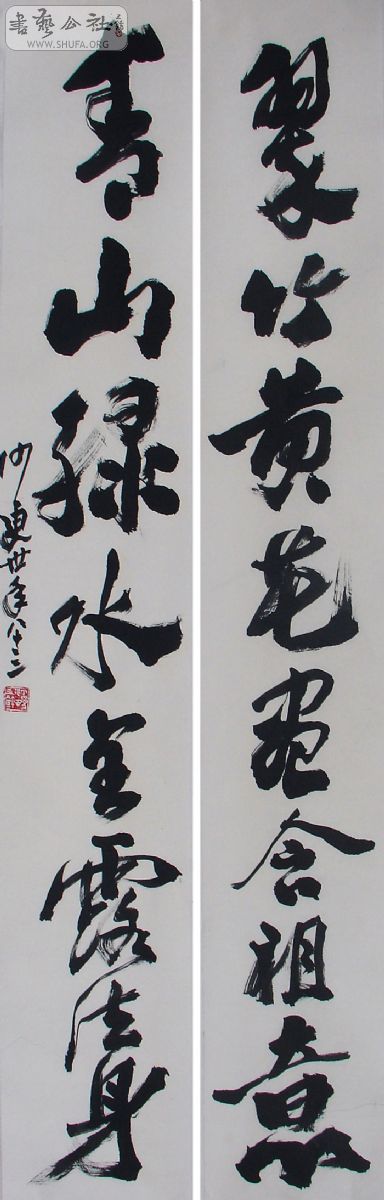 書藝公社
WWW.SHUFA.ORG
翠竹黄花盡含祖意
青山绿水全露法身
沙更世年八十三